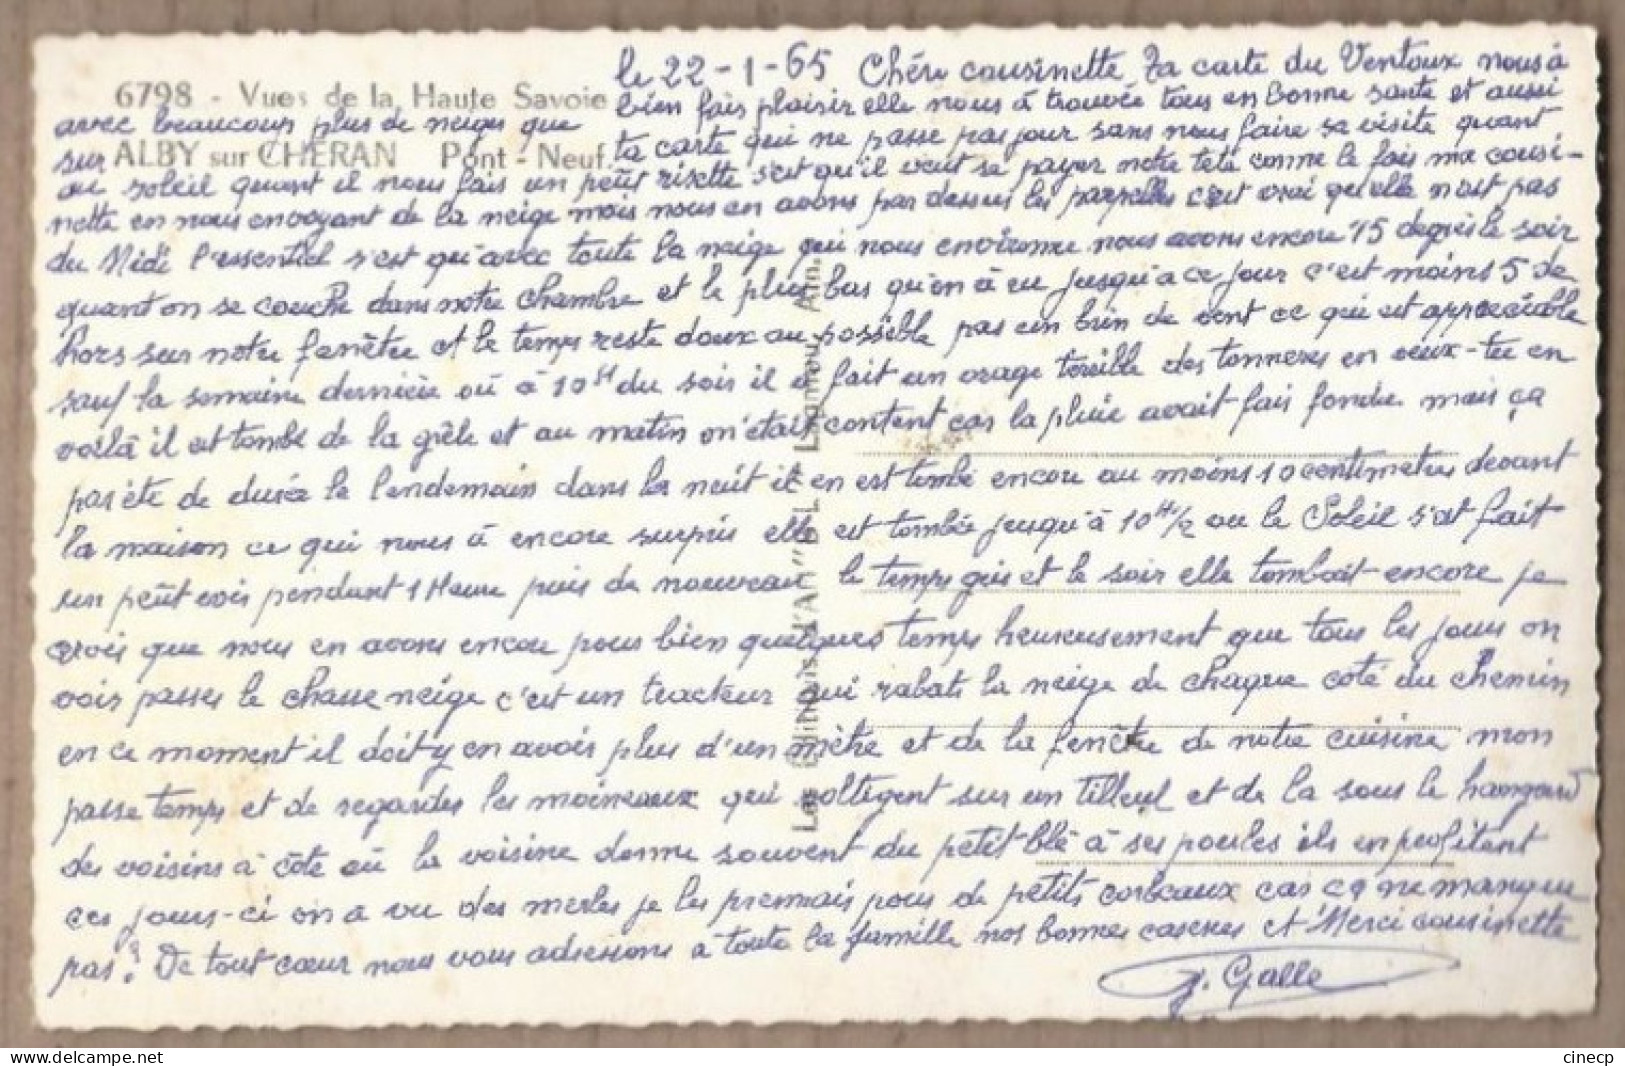 le 22-1-65 Chère cousinette Ta carte du Ventoux nous à
6798 - Vues de la Haute Savoie
bien fais plaisir elle nous à trouvée tous en bonne santé et aussi
avec beaucoup plus de neiges que
sur ALBY sur CHERAN Pont-Neuf.
ta carte qui ne passe pas jour sans nous faire sa visite quant
au soleil quant il nous fais un petit risette s'est qu'il veut se payer notre tête comme le fais ma cousi-
nette en nous envoyant de la neige mais nous en avons par dessus les parpelles c'est vrai qu'elle n'est pas
du Midi l'essentiel s'est qu'avec toute la neige qui nous environne nous avons encore 15 degrés le soir
quant on se couche dans notre chambre et le plus bas qu'on à eu jusqu'a ce jour c'est moins 5 de
hors sur notre fenêtre et le temps reste doux au possible pas un brin de vent ce qui est appréciable
sauf la semaine dernière où à 10H du soir il a fait un orage terrible des tonneres en veux-tu en
voilà il est tombé de la grêle et au matin on était content car la pluie avait fais fondre mais ça
pas été de durée le lendemain dans la nuit il en est tombé encore au moins 10 centimetres devant
la maison ce qui nous à encore surpris elle est tombée jusqu'à 10H1/2 ou le Soleil s'est fait
un petit voir pendant 1 Heure puis de nouveau le temps gris et le soir elle tombait encore je
crois que nous en avons encore pour bien quelques temps heureusement que tous les jours on
vois passer le chasse neige c'est un tracteur qui rabats la neige de chaque coté du chemin
en ce moment il doit y en avoir plus d'un mètre et de la fenêtre de notre cuisine mon
passe temps et de regarder les moineaux qui voltigent sur un tilleul et de la sous le hangard
des voisins à côté où la voisine donne souvent du petit blé à ses poules ils en profitent
ces jours-ci on à vu des merles je les prennais pour de petits corbeaux car ça ne manque
pas? De tout cœur nous vous adressons à toute la famille nos bonnes caresses et Merci cousinette
J. Galle
Les Editions d'Art
cinecp